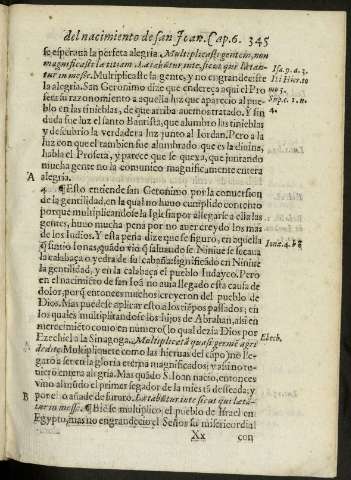 del nacimiento de san Joan. Cap. 6. 345
se esperaua la perfeta alegria. Multiplicasti gentem, non
magnificasti lætitiam. Lætabũtur in te, sicut qui lætan-
tur in messe. Multiplicaste la gente, y no engrãdeciste
la alegria. San Geronimo dize que endereça aqui el Pro
feta su razonamiento a aquella luz que aparecio al pue-
blo en las tinieblas, de que arriba auemos tratado. Y sin
duda fue luz el santo Bautista, que alumbro las tinieblas
y descubrio la verdadera luz junto al Iordan. Pero a la
luz con que el tambien fue alumbrado que es la diuina,
habla el Profeta, y parece que se quexa, que juntando
mucha gente no la comunico magnificamente entera
alegria.
A
4. ¶ Esto entiende san Geronimo por la conuersion
de la gentilidad, en la qual no huuo cumplido contento
porque multiplicandose la Iglesia por allegarse a ella las
gentes, huuo mucha pena por no auer creydo los mas
de los Iudios. Y esta pena dize que se figuro, en aquella
q̃ sintio Ionas, quãdo vio q̃ saluandose Niniue se secaua
la calabaça o yedra de su cabaña: significado en Niniue
la gentilidad, y en la calabaça el pueblo Iudayco. Pero
en el nacimiẽto de san Ioã no auia llegado esta causa de
dolor, porq̃ entonces muchos creyeron del pueblo de
Dios. Mas puedese aplicar esto a los tiẽpos passados; en
los quales multiplicandose los hijos de Abrahan, assi en
merecimiẽto como en numero (lo qual dezia Dios por
Ezechiel o la Sinagoga. Multiplicatã quasi germẽ agri
dedi te. Multipliquete como las hieruas del cãpo) no lle-
garõ a ser en la gloria eterna magnificados; y assi no tu-
uierõ entera alegria. Mas quãdo S. Ioan nacio, entonces
vino al mũdo el primer segador de la mies tã desseada; y
B
por el lo añade de futuro. Lætabũtur in te sicut qui lætã-
tur in messe. ¶ Biẽ se multiplico, el pueblo de Israel en
Egypto, mas no engrandecio el Señor su misericordia
Xx con
Isa. 9. a. 3.
4.
Ionæ. 4. b 8
Ezech.